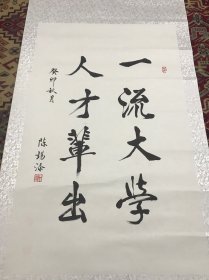 一流大学
人才辈出
癸卯秋月
陈杨海